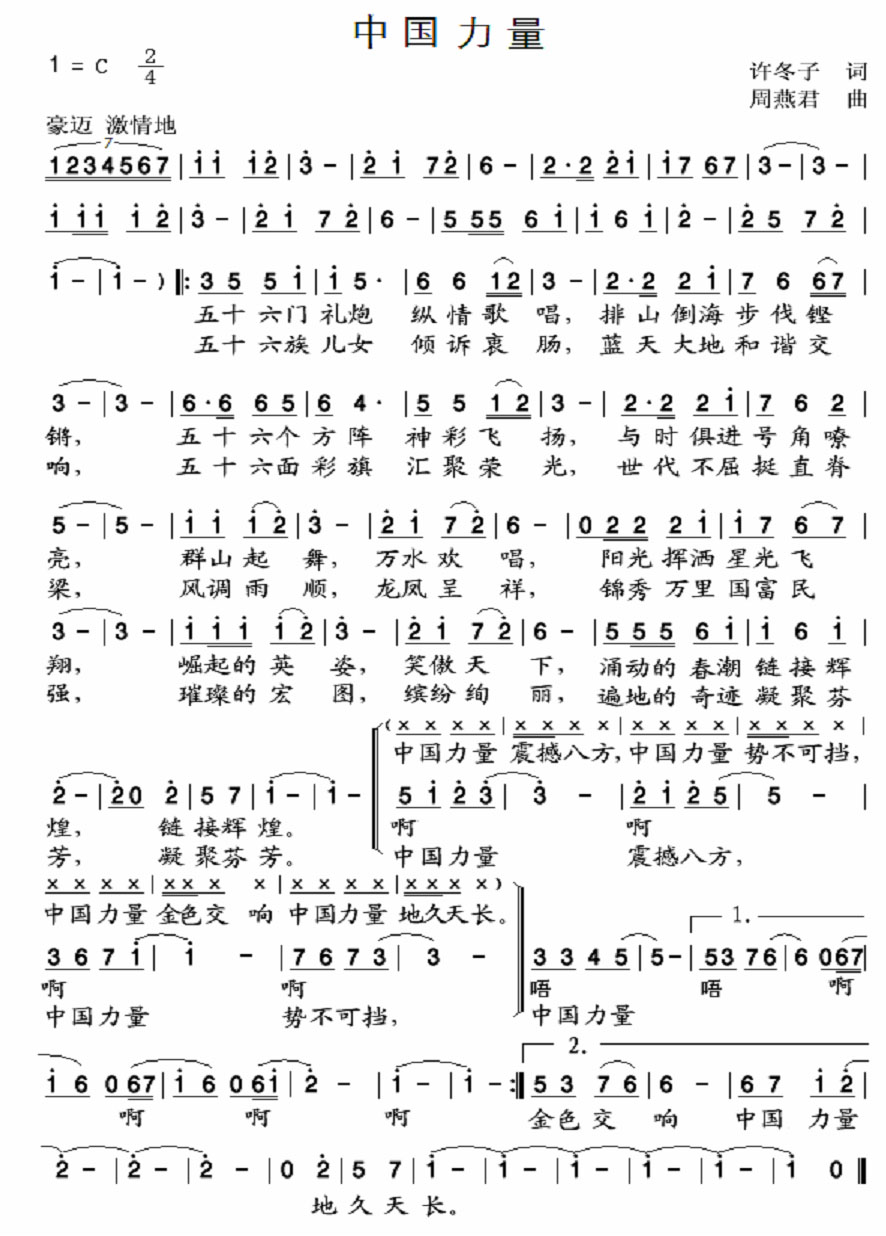 中国力量
1 = C 2/4
许冬子 词
周燕君 曲
豪迈 激情地
7
1234567 | i̇ i̇ i̇2̇ | 3̇ - | 2̇ i̇ 72̇ | 6 - | 2̇·2̇ 2̇i̇ | i̇7 67 | 3 - | 3 - |
i̇ i̇i̇ i̇ 2̇ | 3̇ - | 2̇ i̇ 7 2̇ | 6 - | 5 55 6 i̇ | i̇ 6 i̇ | 2̇ - | 2̇ 5 7 2̇ |
i̇ - | i̇ - ) ‖: 3 5 5 i̇ | i̇ 5· | 6 6 12 | 3 - | 2·2 2 i̇ | 7 6 67 |
五十六门礼炮 纵情歌 唱, 排山倒海步伐铿
五十六族儿女 倾诉衷 肠, 蓝天大地和谐交
3 - | 3 - | 6·6 65 | 6 4· | 5 5 12 | 3 - | 2·2 2 i̇ | 7 6 2 |
锵, 五十六个方阵 神彩飞 扬, 与时俱进号角嘹
响, 五十六面彩旗 汇聚荣 光, 世代不屈挺直脊
5 - | 5 - | i̇ i̇ i̇2̇ | 3̇ - | 2̇ i̇ 72̇ | 6 - | 0 2 2 2 i̇ | i̇ 7 6 7 |
亮, 群山起 舞, 万水欢 唱, 阳光挥洒星光飞
梁, 风调雨 顺, 龙凤呈 祥, 锦秀万里国富民
3 - | 3 - | i̇ i̇ i̇ i̇2̇ | 3̇ - | 2̇ i̇ 72̇ | 6 - | 5 5 5 6 i̇ | i̇ 6 i̇ |
翔, 崛起的英 姿, 笑傲天 下, 涌动的春潮链接辉
强, 璀璨的宏 图, 缤纷绚 丽, 遍地的奇迹凝聚芬
( x x x x | x x x x | x x x x | x x x x |
中国力量 震撼八方,中国力量 势不可挡,
2̇ - | 2̇0 2̇ | 5 7 | i̇ - | i̇ - 5 i̇ 2̇ 3̇ | 3̇ - | 2̇ i̇ 2̇ 5 | 5 - |
煌, 链接辉煌。 啊 啊
芳, 凝聚芬芳。 中国力量 震撼八方,
x x x x | x x x x | x x x x | x x x x )
中国力量 金色交 响 中国力量 地久天长。
1.
3 6 7 i̇ | i̇ - | 7 6 7 3 | 3 - 3 3 4 5 | 5 - | 53 76 | 6 067 |
啊 啊 唔 唔 啊
中国力量 势不可挡, 中国力量
2.
i̇ 6 067 | i̇ 6 06i̇ | 2̇ - | i̇ - | i̇ - :‖ 5 3 7 6 | 6 - | 6 7 i̇ 2̇ |
啊 啊 啊 金色交 响 中国 力量
2̇ - | 2̇ - | 2̇ - | 0 2̇ | 5 7 | i̇ - | i̇ - | i̇ - | i̇ - | i̇ 0 ‖
地久天长。